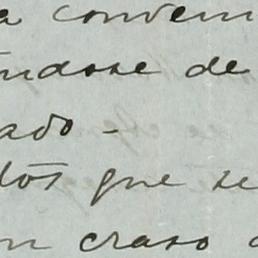 a conven
ndose de
ado -
dos que se
un craso